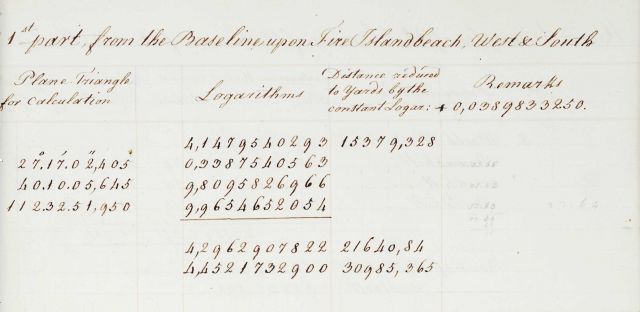 1st part, from the Baseline upon Fire Islandbeach, West & South
Plane Triangle for Calculation
Logarithms
Distance reduced to Yards by the constant Logar: + 0,0389833250.
Remarks
4,1479540293 15379,328
27°.17'.02",405 0,3387540563
40.10.05,645 9,8095826966
112.32.51,950 9,9654652054
4,2962907822 21640,84
4,4521732900 30985,365